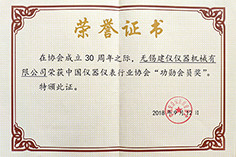 荣誉证书
在协会成立 30 周年之际，无锡建仪仪器机械有
限公司荣获中国仪器仪表行业协会“功勋会员奖”。
特颁此证。
2018